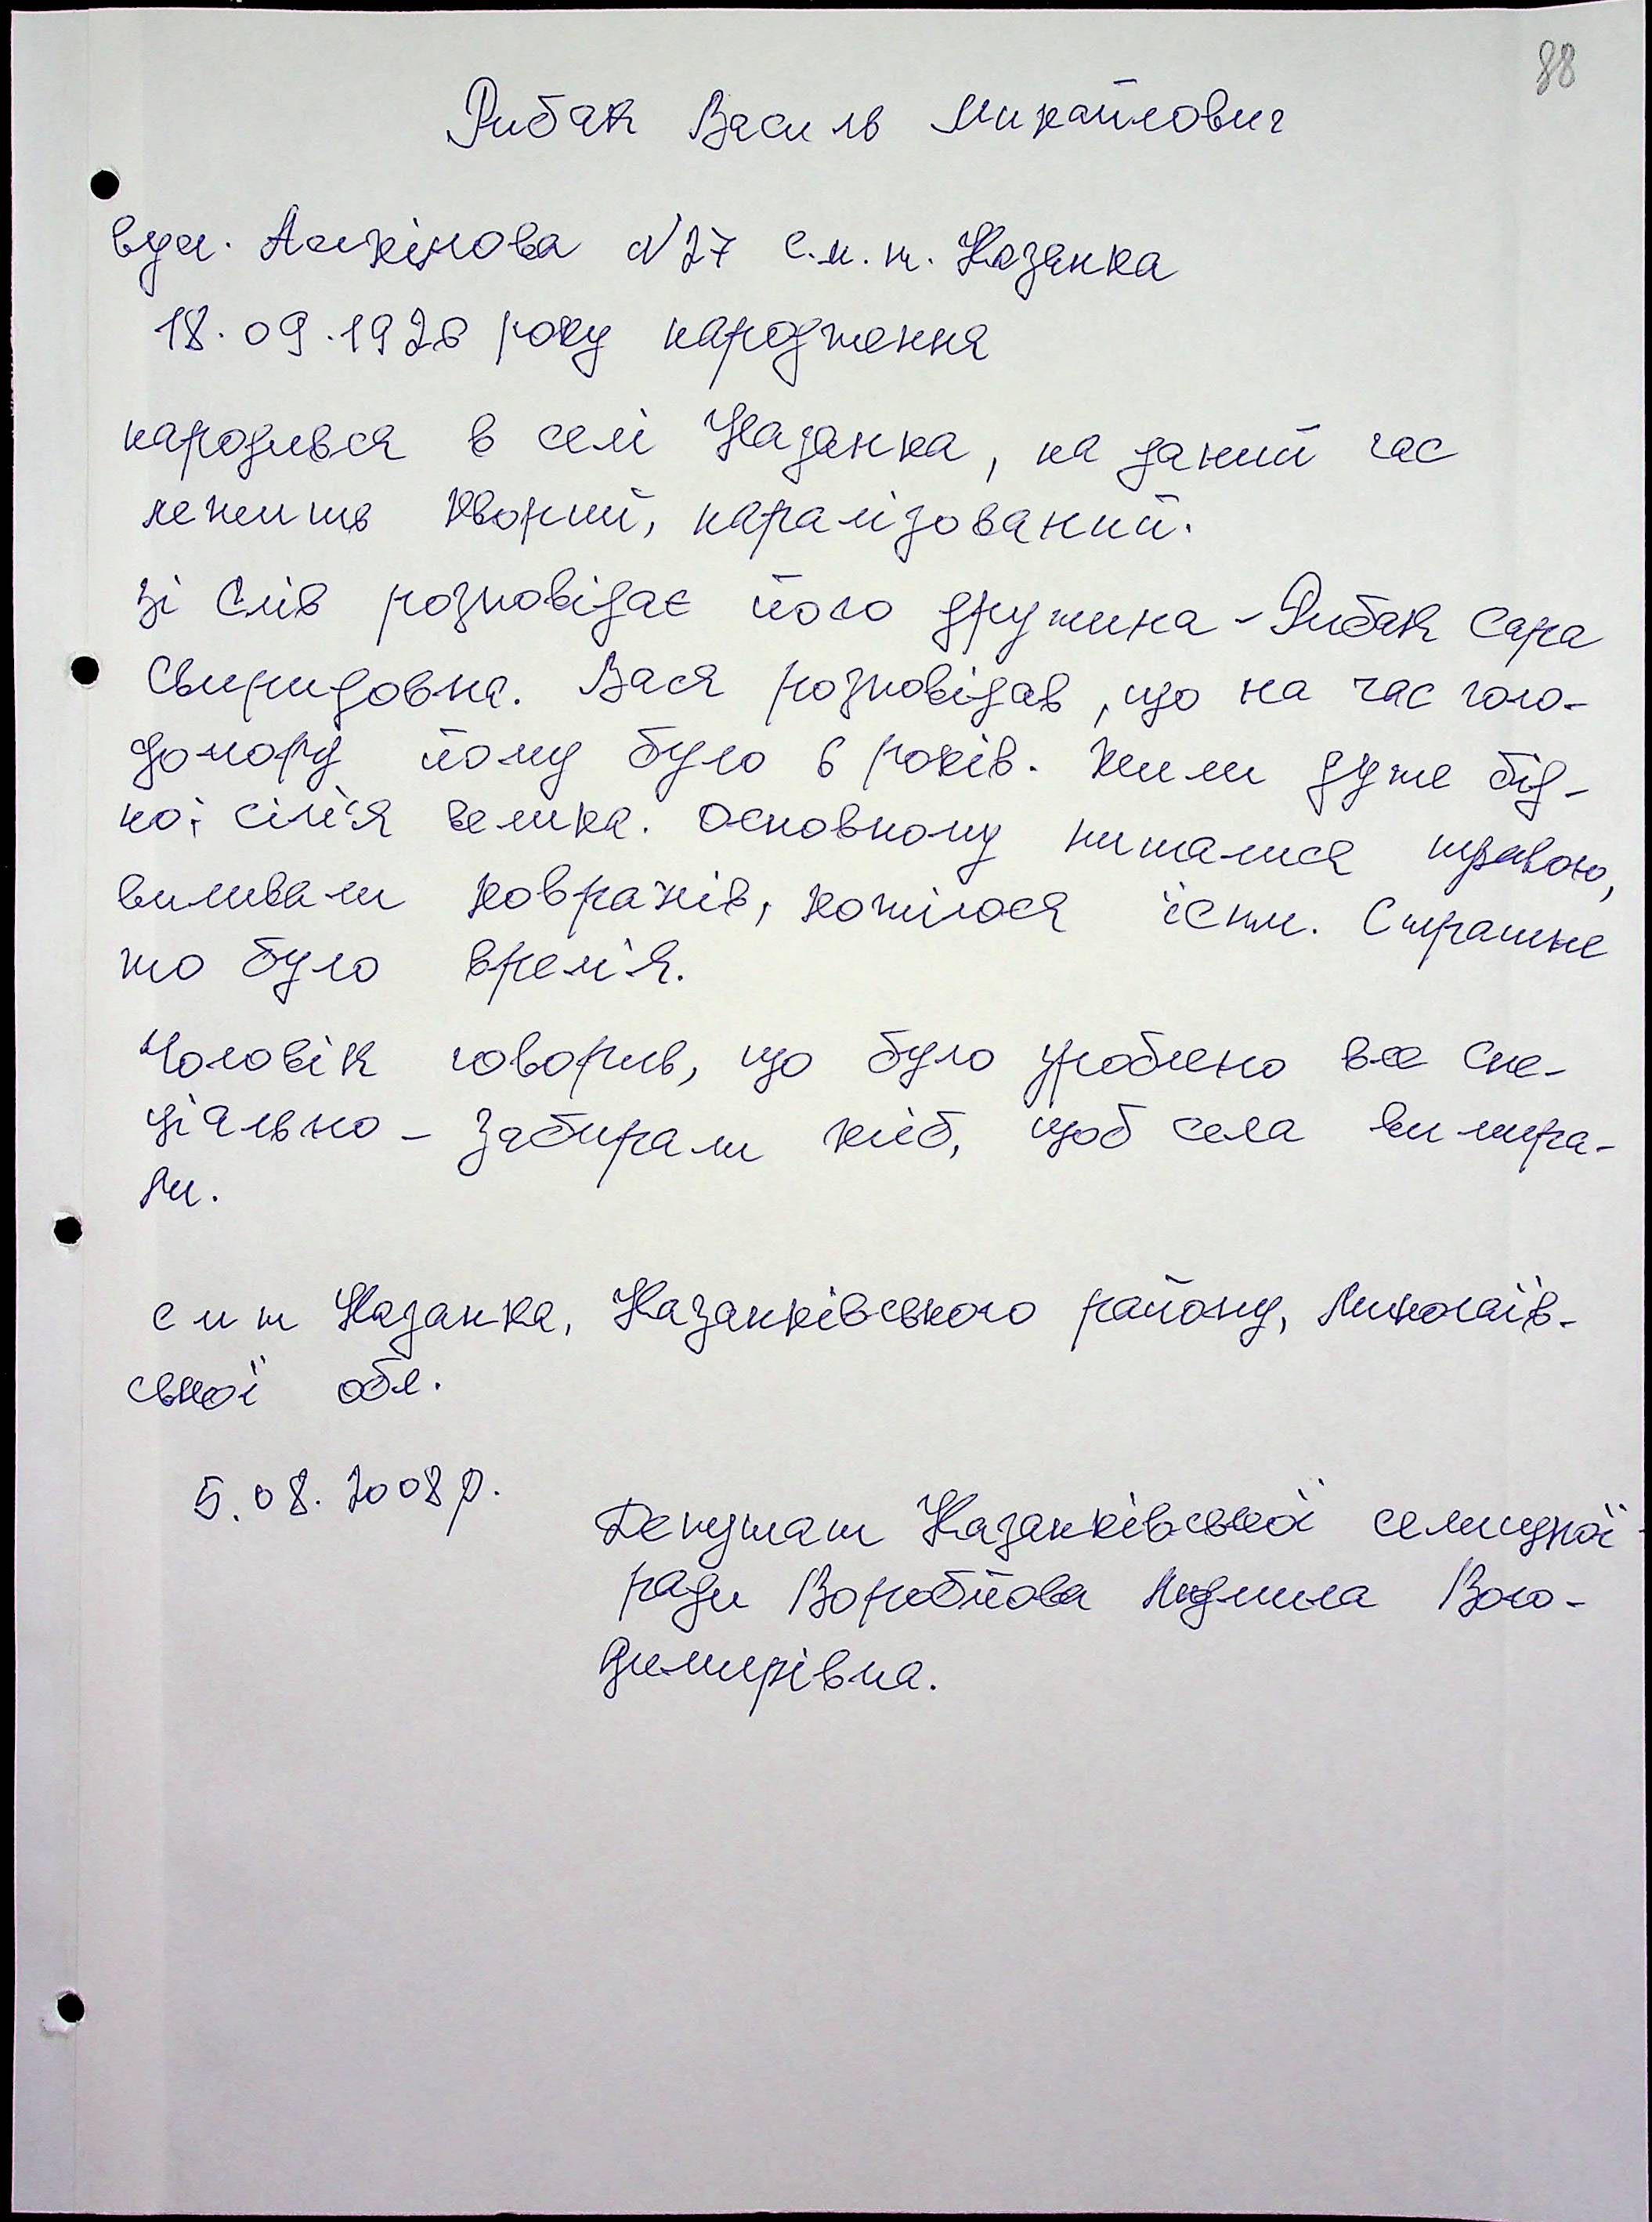 88
Рибак Василь Михайлович
вул. Алхімова №27 с.м.т. Казанка
18.09.1926 року народження
народився в селі Казанка, на даний час
лежить хворий, паралізований.
Зі слів розповідає його дружина - Рибак Сара
Свиридовна. Вася розповідав, що на час голо-
домору йому було 6 років. Жили дуже бід-
но; сім'я велика. Основному питалися травою,
виливали ховрахів, хотілося їсти. Страшне
то було врем'я.
Чоловік говорив, що було зроблено все спе-
ціально - забирали хліб, щоб села вимира-
ли.
с м т Казанка, Казанківського району, Миколаїв-
ської обл.
5.08.2008 р.
Депутат Казанківської селищної
ради Воробйова Людмила Воло-
димирівна.